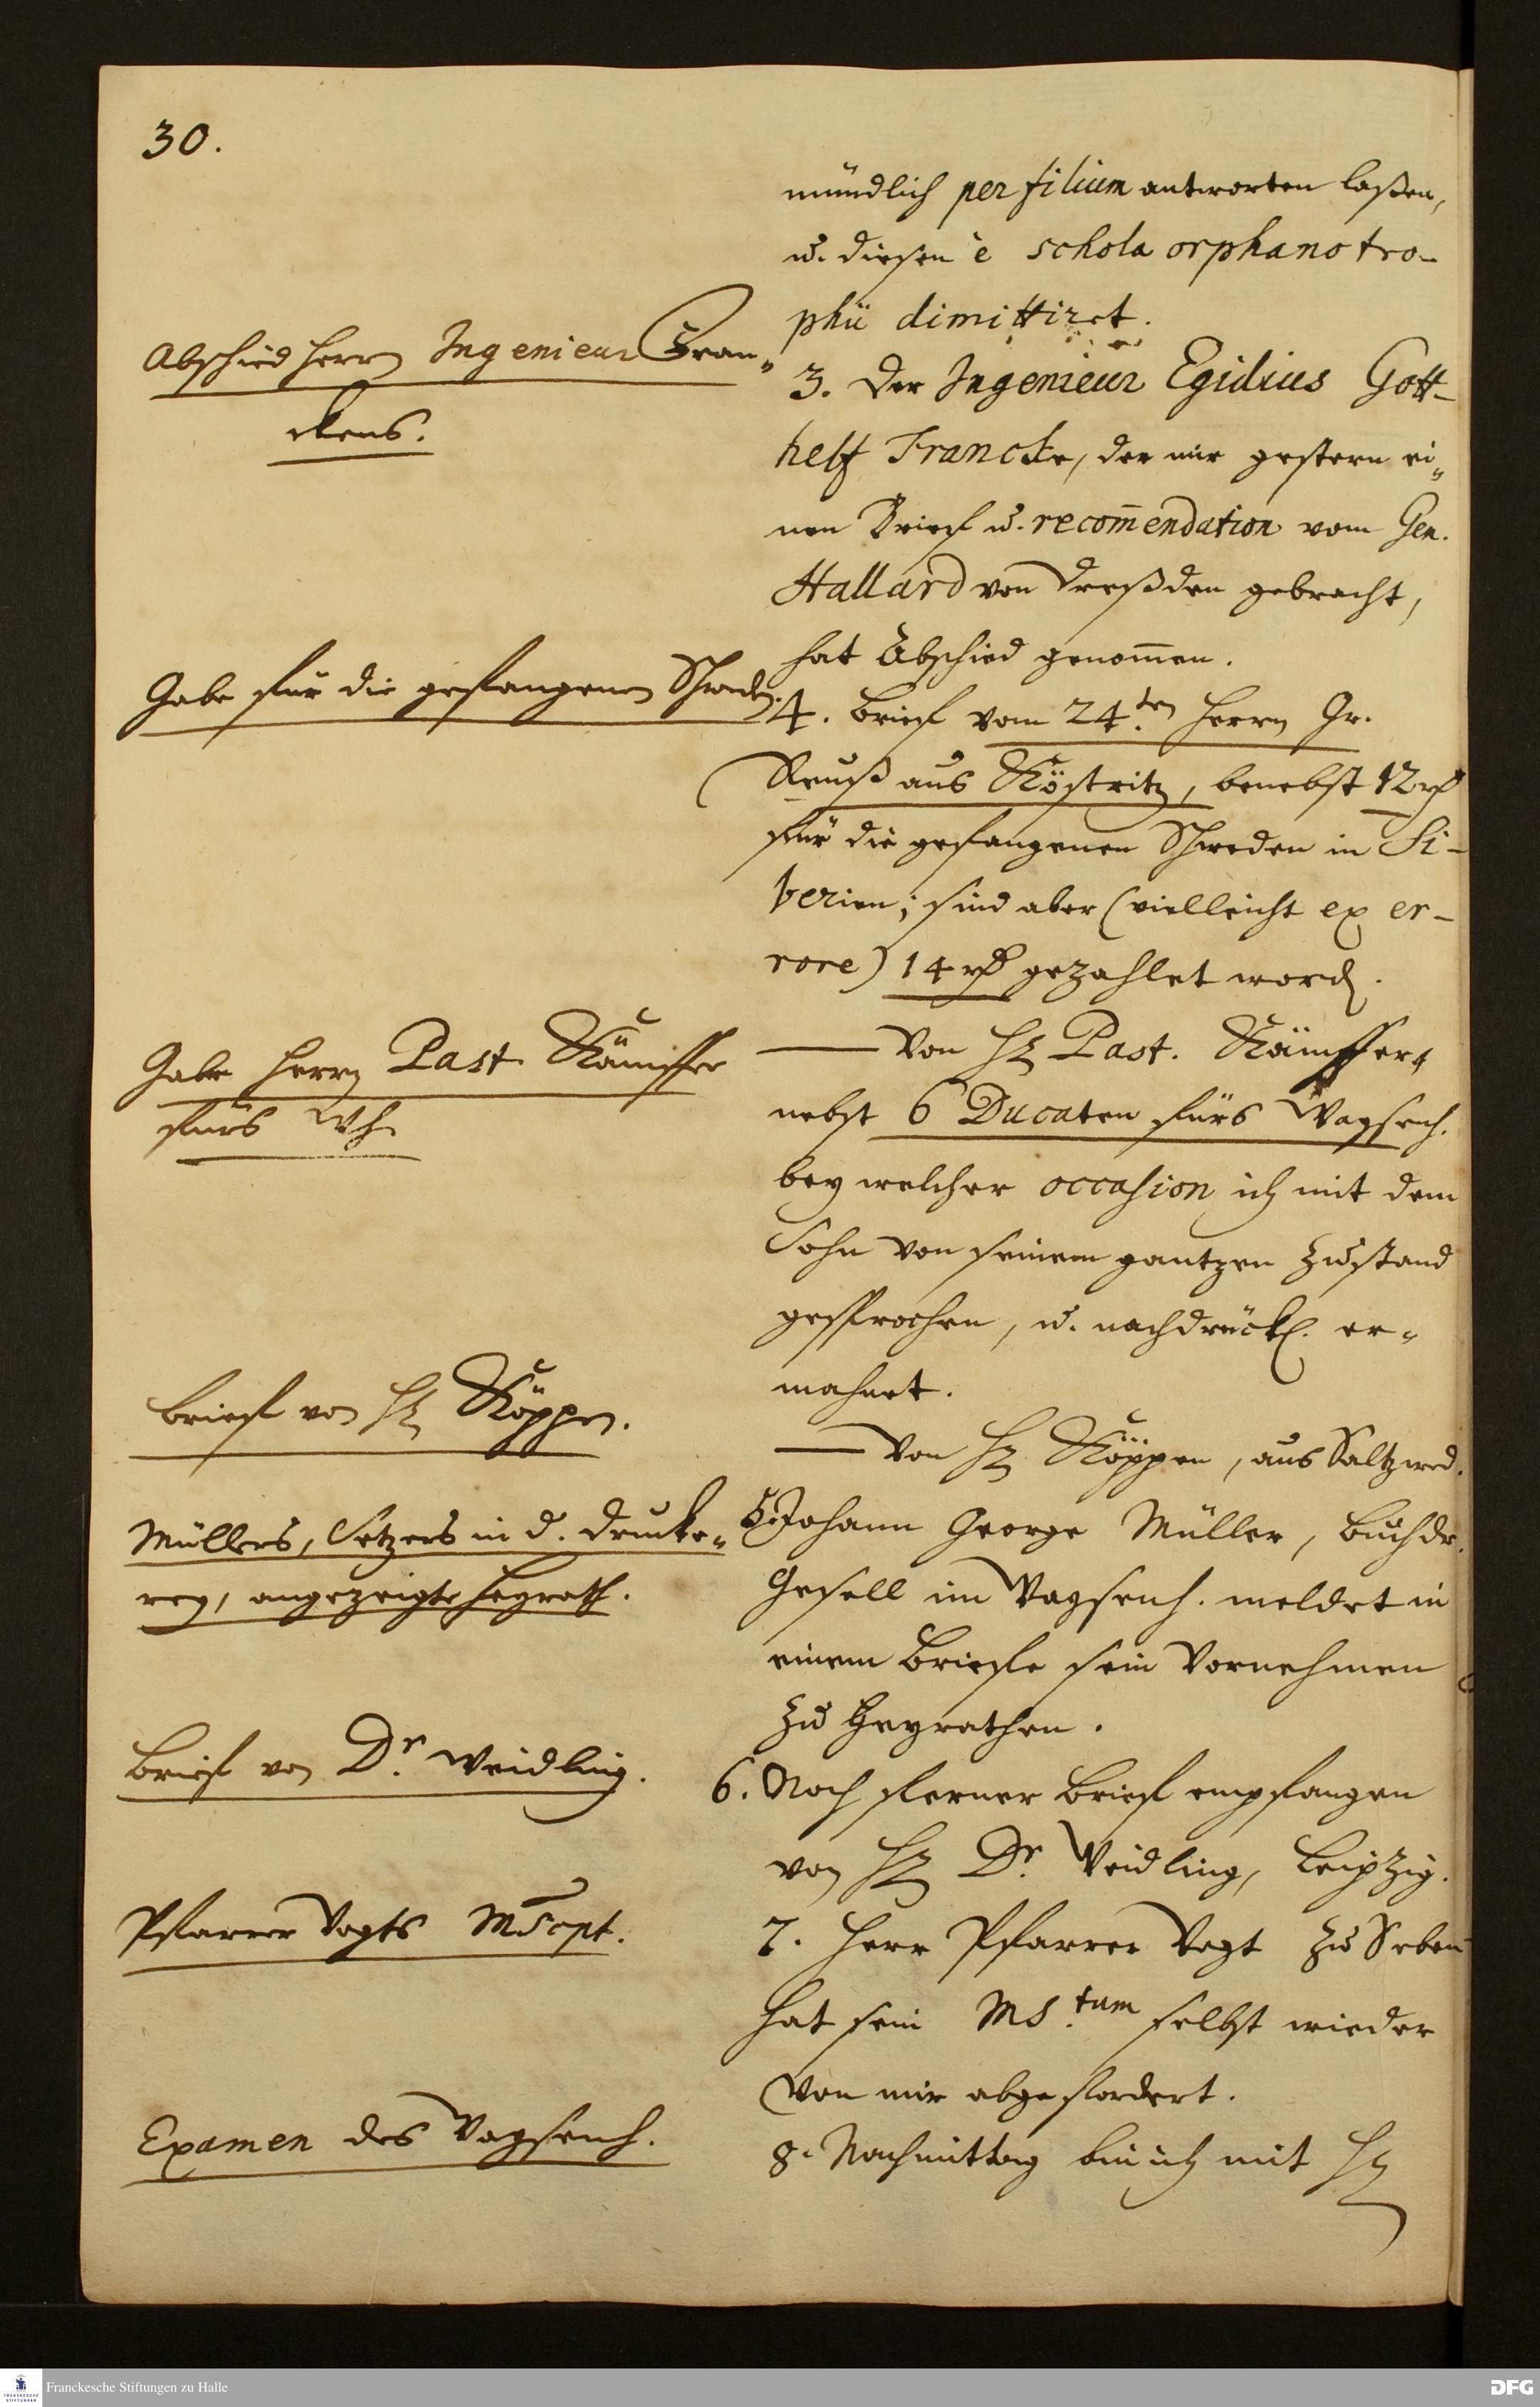 30.
mündlich per filium antworten laßen,
u. diesen è schola orphanotro-
phii dimittiret.
Abschied Herrn Ingenieur Fran-
ckens.
3. Der Ingenieur Egidius Gott-
helf Francke, der mir gestern ei-
nen Brief u. recom̄endation vom Gen.
Hallard von Dreßden gebracht,
hat Abschied genom̄en.
Gabe für die gefangenen Schweden.
4. Brief vom 24ten Herrn Gr.
Reuß aus Köstritz, benebst 12 rh
für die gefangenen Schweden in Si-
berien; sind aber (vielleicht ex er-
rore) 14 rh gezahlet word.
Gabe Herrn Past. Kämpffer
fürs Wh.
— Von H. Past. Kämpffer,
nebst 6 Ducaten fürs Waysenh.
bey welcher occasion ich mit dem
Sohn von seinem gantzen Zustand
gesprochen, u. nachdrückl. er-
mahnet.
Brief von H. Köppen.
— Von H. Köppen, aus Saltzwed.
Müllers, Setzers in d. Drucke-
rey, angezeigte Heyrath.
5. Johann George Müller, Buchdr.
Gesell im Waysenh. meldet in
einem Briefe sein Vornehmen
zu Heyrathen.
Brief von Dr. Weidling.
6. Noch ferner Brief empfangen
von H. Dr. Weidling, Leipzig.
Pfarrer Vogts MScpt.
7. Herr Pfarrer Vogt zu Seben
hat sein MS.tum selbst wieder
von mir abgefordert.
Examen des Waysenh.
8. Nachmittag bin ich mit H.
Franckesche Stiftungen zu Halle
FRANCKESCHE
STIFTUNGEN
DFG